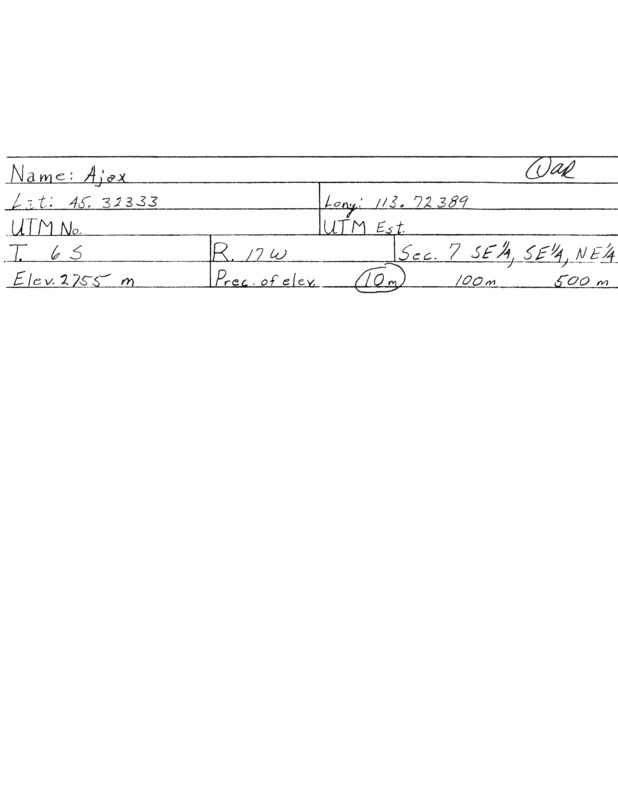 Name: Ajax
Lat: 45. 32333 Long: 113. 72389
UTM No. UTM Est.
T. 6 S R. 17 W Sec. 7 SE¼, SE¼, NE¼
Elev. 2755 m Prec. of elev. 10m 100m 500 m